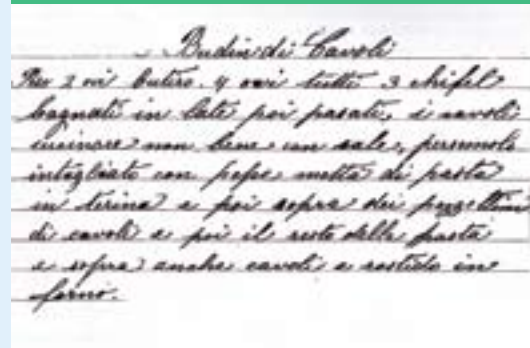 Budin di Cavoli
Per 2 ovi butiro. 4 ovi tutti 3 chifel
bagnati in late poi pasati, i cavoli
cucinare non bene con sale,
intagliato con pefe metta di pasta
in terina e poi sopra dei pezzettini
di cavoli e poi il resto della pasta
e sopra anche cavoli e rostido in
forno.